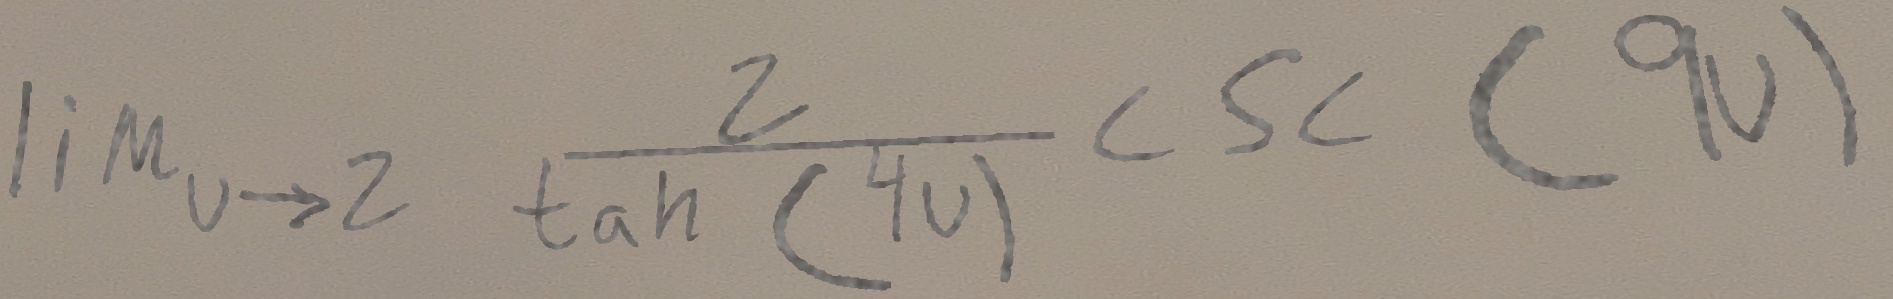 \lim_{v \to 2} \frac{2}{\tan(4v)} \csc(9v)